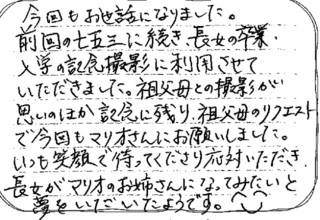 今回もお世話になりました。
前回の七五三に続き、長女の卒業・
入学の記念撮影に利用させて
いただきました。祖父母との撮影が
思いのほか記念に残り、祖父母のリクエスト
で今回もマリオさんにお願いしました。
いつも笑顔で待ってくださり応対いただき、
長女がマリオのお姉さんになってみたいと
夢をいだいたようです。